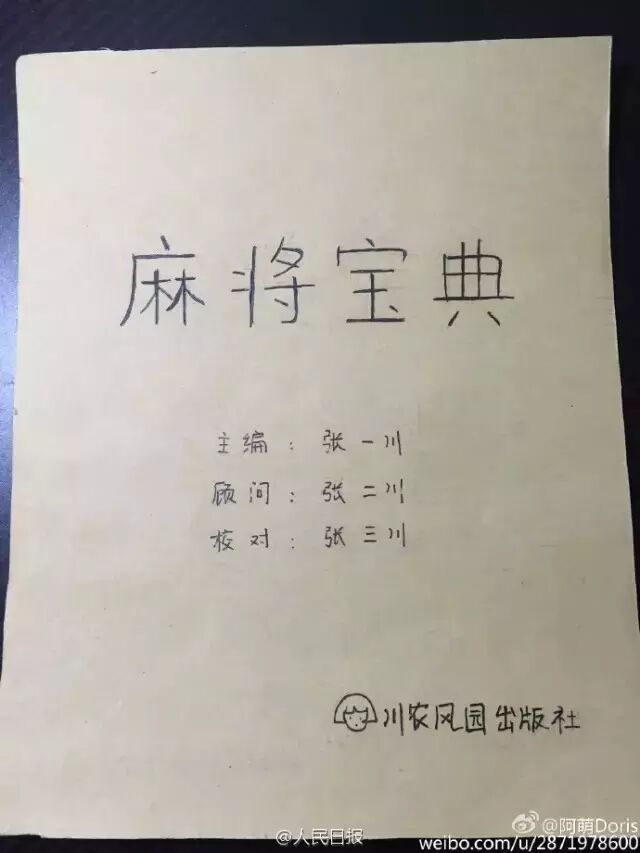 麻将宝典
主编：张一川
顾问：张二川
校对：张三川
川农风园出版社
@人民日报
@阿萌Doris
weibo.com/u/2871978600